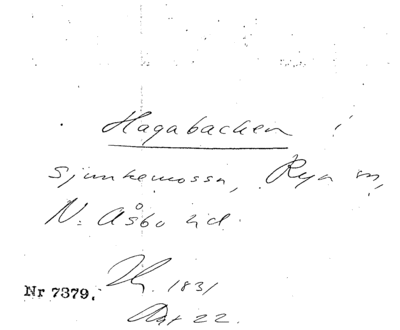 Hagabacken
Sjunkemossa, Rya sn,
N. Åsbo hd.
1831
Nr 7379.
22.